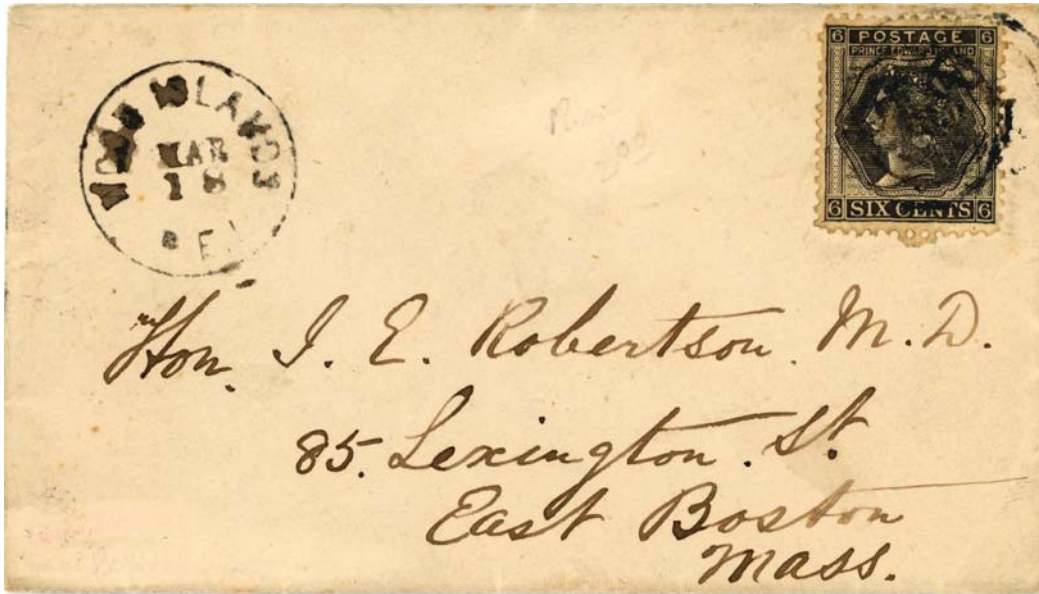 ISLANDS
MAR
18
6 POSTAGE 6
PRINCE EDWARD ISLAND
6 SIX CENTS 6
Hon. J. E. Robertson. M. D.
85. Lexington. St.
East Boston
Mass.